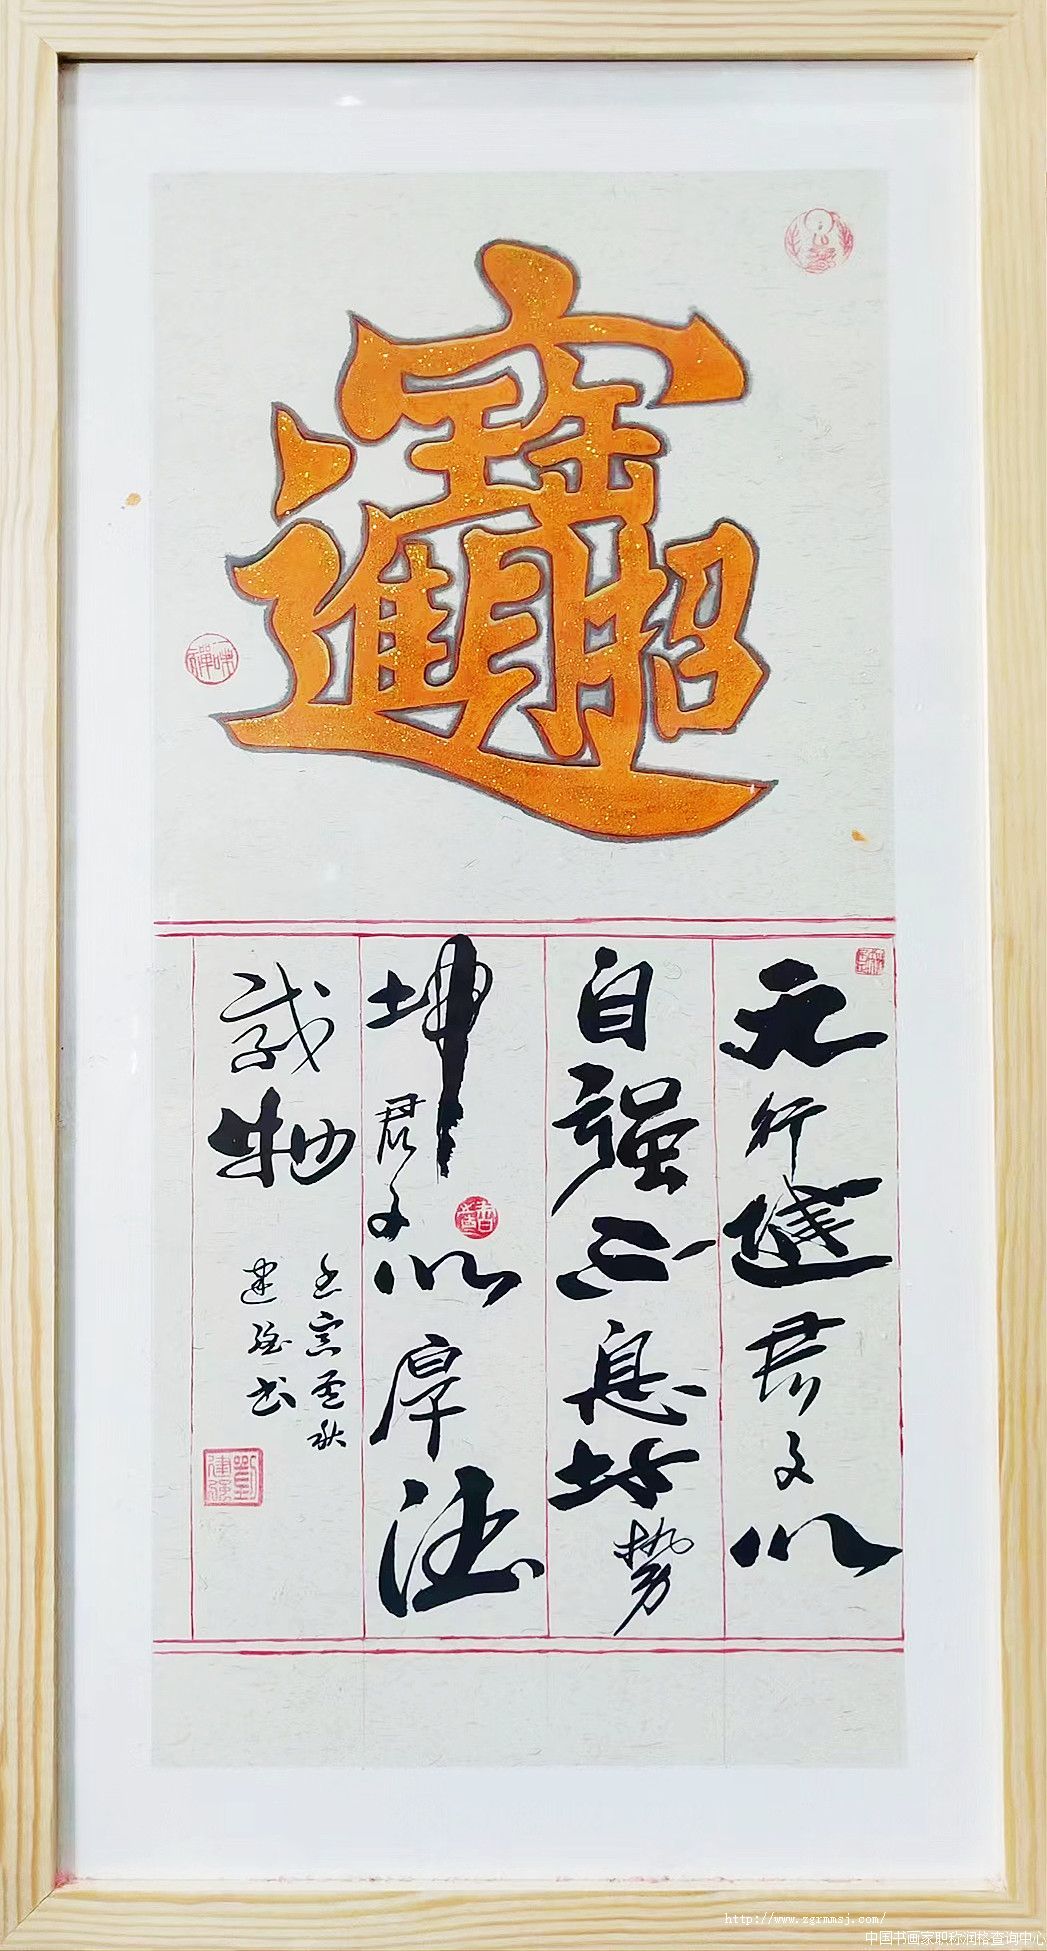 招財進寶
禪味
天行健君子以
自强不息地势
坤君子以厚德
载物
壬寅秋
建强书
劉建強
http://www.zgrmmsj.com/
中国书画家职称润格查询中心